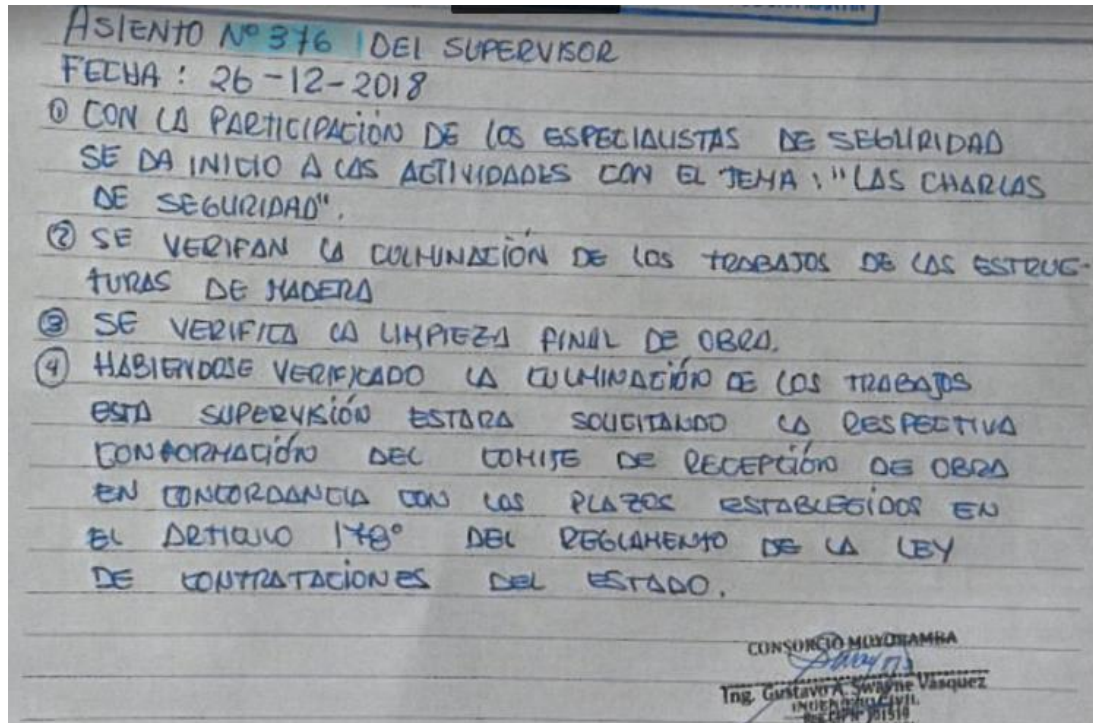 ASIENTO Nº 376 DEL SUPERVISOR
FECHA : 26-12-2018
① CON LA PARTICIPACIÓN DE LOS ESPECIALISTAS DE SEGURIDAD
SE DA INICIO A LAS ACTIVIDADES CON EL TEMA : "LAS CHARLAS
DE SEGURIDAD".
② SE VERIFAN LA CULMINACIÓN DE LOS TRABAJOS DE LAS ESTRUC-
TURAS DE MADERA
③ SE VERIFICA LA LIMPIEZA FINAL DE OBRA.
④ HABIENDOSE VERIFICADO LA CULMINACIÓN DE LOS TRABAJOS
ESTA SUPERVISIÓN ESTARA SOLICITANDO LA RESPECTIVA
CONFORMACIÓN DEL COMITE DE RECEPCIÓN DE OBRA
EN CONCORDANCIA CON LOS PLAZOS ESTABLECIDOS EN
EL ARTICULO 178° DEL REGLAMENTO DE LA LEY
DE CONTRATACIONES DEL ESTADO.
CONSORCIO MOYOBAMBA
Ing. Gustavo A. Swayne Vásquez
INGENIERO CIVIL